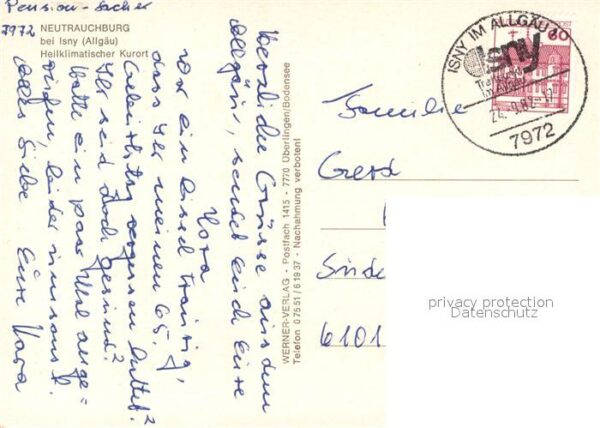 Pension - Sacher
7972 NEUTRAUCHBURG
bei Isny (Allgäu)
Heilklimatischer Kurort
Herzliche Grüsse aus dem
Allgäu, sendet Euch Eure
Nora
War ein bissel traurig,
dass Ihr meinen 65.
Geburtstag vergessen hattet?
Ihr seid doch gesund?
Hatte ein paar Mal ange=
rufen, leider umsonst.
Alles Liebe Eure Nora
WERNER-VERLAG - Postfach 1415 - 7770 Überlingen/Bodensee
Telefon 07551/61937 - Nachahmung verboten!
ISNY IM ALLGÄU
isny
24.-9.8
7972
60
Familie
Gerd
6101
privacy protection
Datenschutz